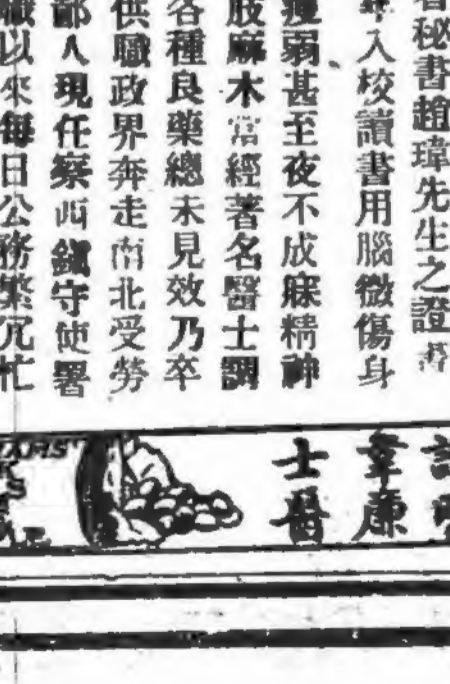 秘書趙瑋先生之證書
年入校讀書用腦微傷身
瘦弱甚至夜不成寐精神
肢麻木當經著名醫士調
各種良藥總未見效乃卒
供職政界奔走南北受勞
鄙人現任察西鎭守使署
職以來每日公務繁冗忙
韋廉
士醫